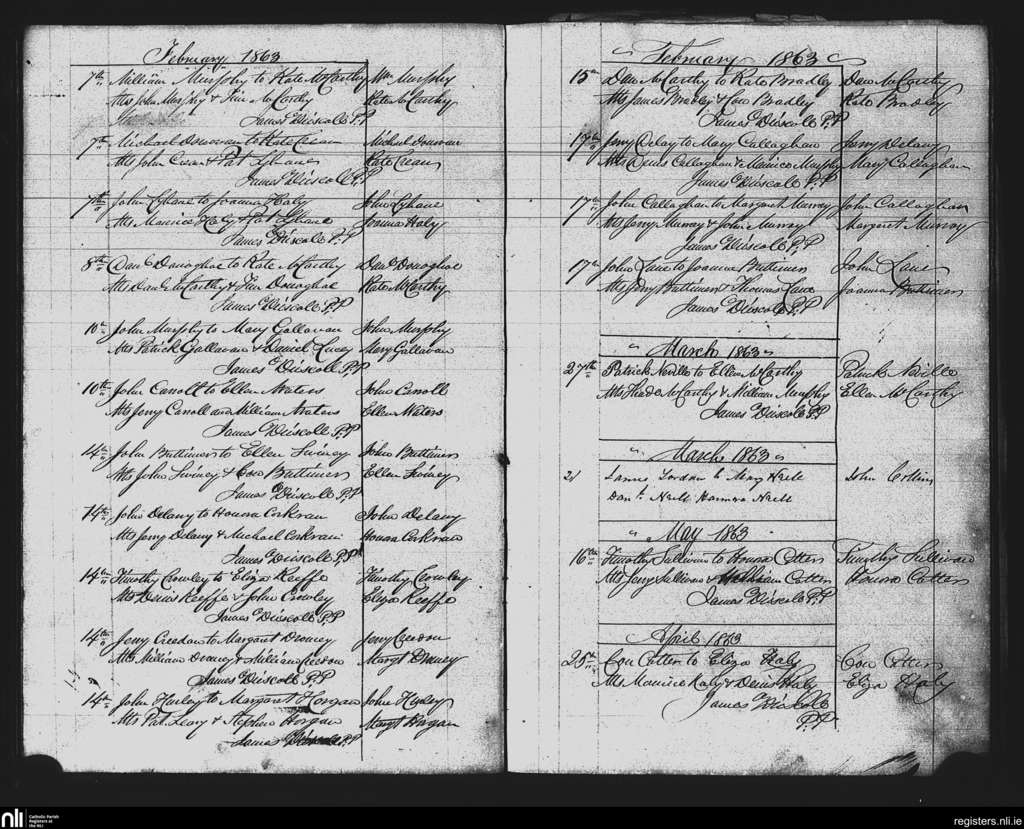 February 1863
7th William Murphy to Kate McCarthy Wm Murphy
Atts John Murphy & Jim McCarthy Kate McCarthy
James O'Driscoll P.P
7th Michael Donovan to Kate Crean Michael Donovan
Atts John Crean & Pat Lyhane Kate Crean
James O'Driscoll P.P
7th John Lyhane to Joanna Haly John Lyhane
Atts Maurice Haly & Pat Lyhane Joanna Haly
James O'Driscoll P.P
8th Danl Donoghoe to Kate McCarthy Danl Donoghoe
Atts Danl McCarthy & Jim Donoghoe Kate McCarthy
James O'Driscoll P.P
10th John Murphy to Mary Gallavan John Murphy
Atts Patrick Gallavan & Daniel Lucey Mary Gallavan
James O'Driscoll P.P
10th John Carroll to Ellen Waters John Carroll
Atts Jerry Carroll and William Waters Ellen Waters
James O'Driscoll P.P
14th John Buttimer to Ellen Swiney John Buttimer
Atts John Swiney & Con Buttimer Ellen Swiney
James O'Driscoll P.P
14th John Delany to Honora Corkran John Delany
Atts Jerry Delany & Michael Corkran Honora Corkran
James O'Driscoll P.P
14th Timothy Crowley to Eliza Keeffe Timothy Crowley
Atts Denis Keeffe & John Crowley Eliza Keeffe
James O'Driscoll P.P
14th Jerry Creedon to Margaret Droney Jerry Creedon
Atts William Droney & William Creedon Margt Droney
James O'Driscoll P.P
14th John Hurley to Margaret Horgan John Hurley
Atts Pat Leary & Stephen Horgan Margt Horgan
James O'Driscoll P.P
February 1863
15th Dan McCarthy to Kate Bradley Dan McCarthy
Atts James Bradley & Con Bradley Kate Bradley
James O'Driscoll P.P
17th Jerry Delany to Mary Callaghan Jerry Delany
Atts Denis Callaghan & Maurice Murphy Mary Callaghan
James O'Driscoll P.P
17th John Callaghan to Margaret Murray John Callaghan
Atts Jerry Murray & John Murray Margaret Murray
James O'Driscoll P.P
17th John Lane to Joanna Buttimer John Lane
Atts Jerry Buttimer & Thomas Lane Joanna Buttimer
James O'Driscoll P.P
" March 1863 "
27th Patrick Neville to Ellen McCarthy Patrick Neville
Atts McCarthy & William Murphy Ellen McCarthy
James O'Driscoll P.P
" March 1863 "
21 to Mary John Collins
Danl
" May 1863
16th Timothy Sullivan to Honora Cotter Timothy Sullivan
Atts Jerry Sullivan & William Cotter Honora Cotter
James O'Driscoll P.P
April 1863
25th Con Cotter to Eliza Haly Con Cotter
Atts Maurice Haly & Denis Haly Eliza Haly
James O'Driscoll
P.P
nli Catholic Parish
Registers at
the NLI
registers.nli.ie